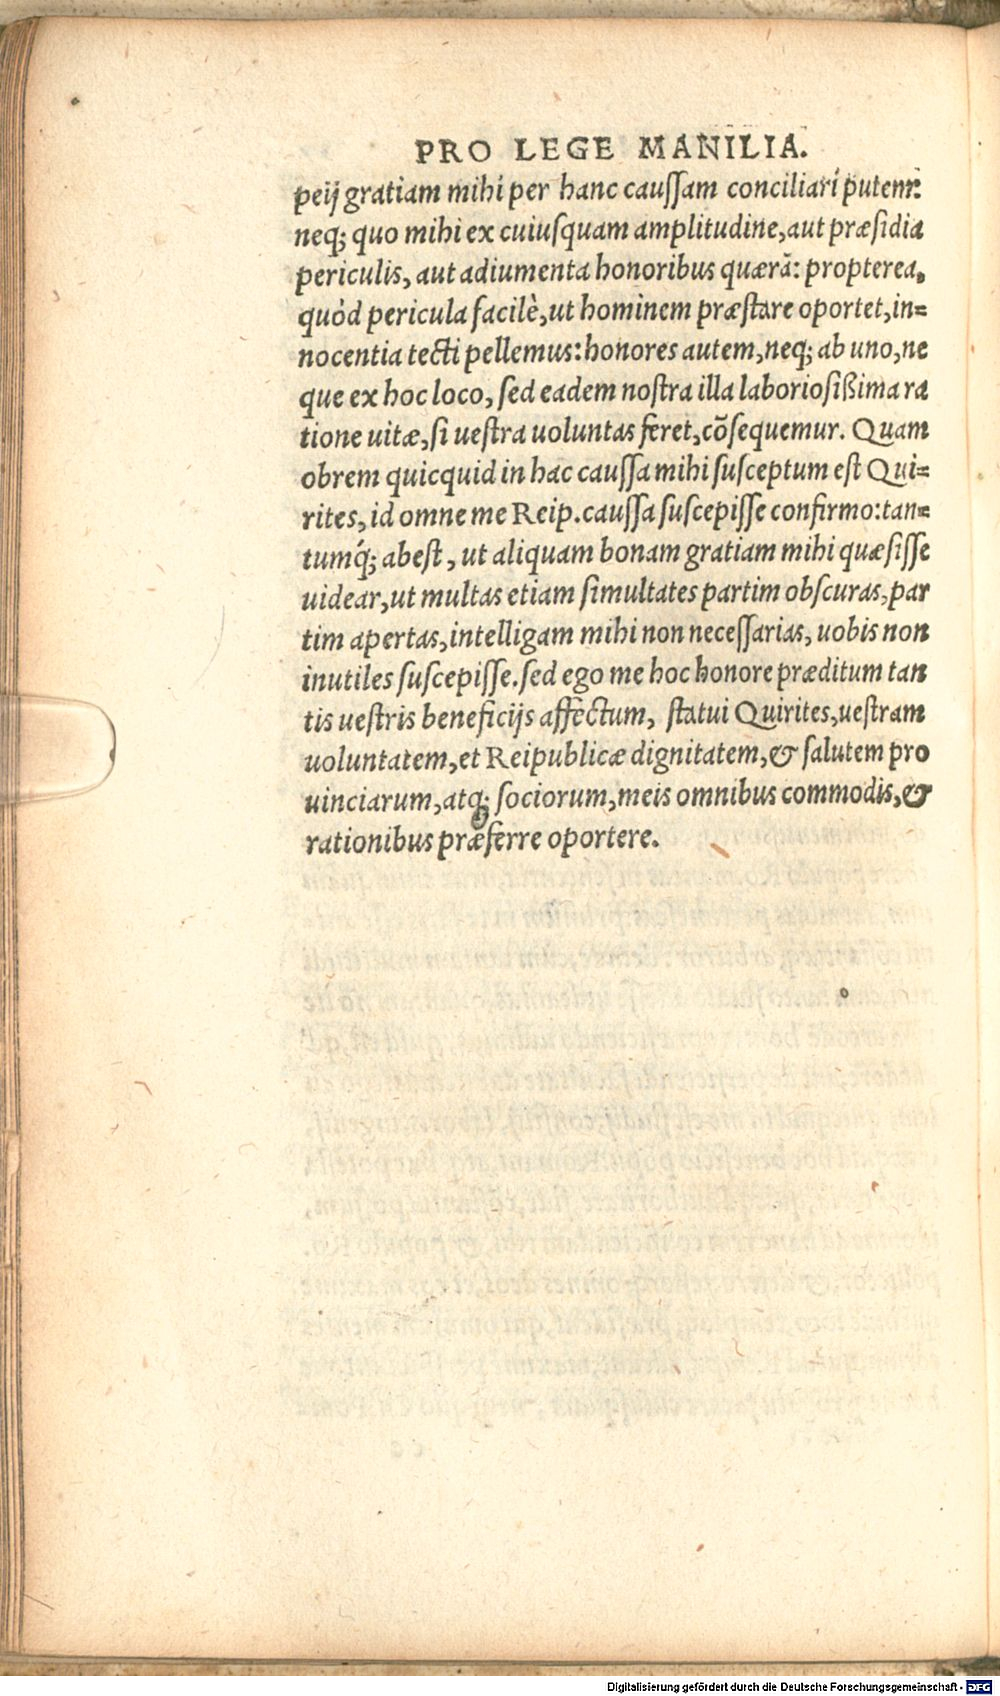 PRO LEGE MANILIA.
peij gratiam mihi per hanc cauſſam conciliari putem:
neq; quo mihi ex cuiuſquam amplitudine, aut præſidia
periculis, aut adiumenta honoribus quærã: propterea,
quòd pericula facilè, ut hominem præſtare oportet, in=
nocentia tecti pellemus: honores autem, neq; ab uno, ne
que ex hoc loco, ſed eadem noſtra illa laborioſißima ra
tione uitæ, ſi ueſtra uoluntas feret, cõſequemur. Quam
obrem quicquid in hac cauſſa mihi ſuſceptum eſt Qui=
rites, id omne me Reip. cauſſa ſuſcepiſſe confirmo: tan=
tumq́; abeſt, ut aliquam bonam gratiam mihi quæſiſſe
uidear, ut multas etiam ſimultates partim obſcuras, par
tim apertas, intelligam mihi non neceſſarias, uobis non
inutiles ſuſcepiſſe. ſed ego me hoc honore præditum tan
tis ueſtris beneficijs affectum, ſtatui Quirites, ueſtram
uoluntatem, et Reipublicæ dignitatem, & ſalutem pro
uinciarum, atq; ſociorum, meis omnibus commodis, &
rationibus præferre oportere.
Digitalisierung gefördert durch die Deutsche Forschungsgemeinschaft - DFG